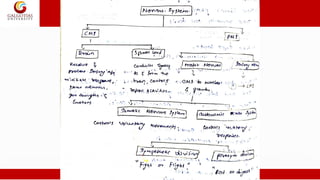 GALGOTIAS
UNIVERSITY
Nervous System
CNS
PNS
Brain
Spinal Cord
Motor Neuron
Sensory
Receive &
process Sensory
initiate response,
store memories,
generate thoughts &
Emotions
Conducts Signals
to & from the
brain, controls
reflex activities
CNS to muscles
& glands
Somatic Nervous System
Autonomic Nervous System
Controls voluntary movements
Controls involuntary
responses
Sympathetic division
"Fight or Flight"
"Rest or digest"